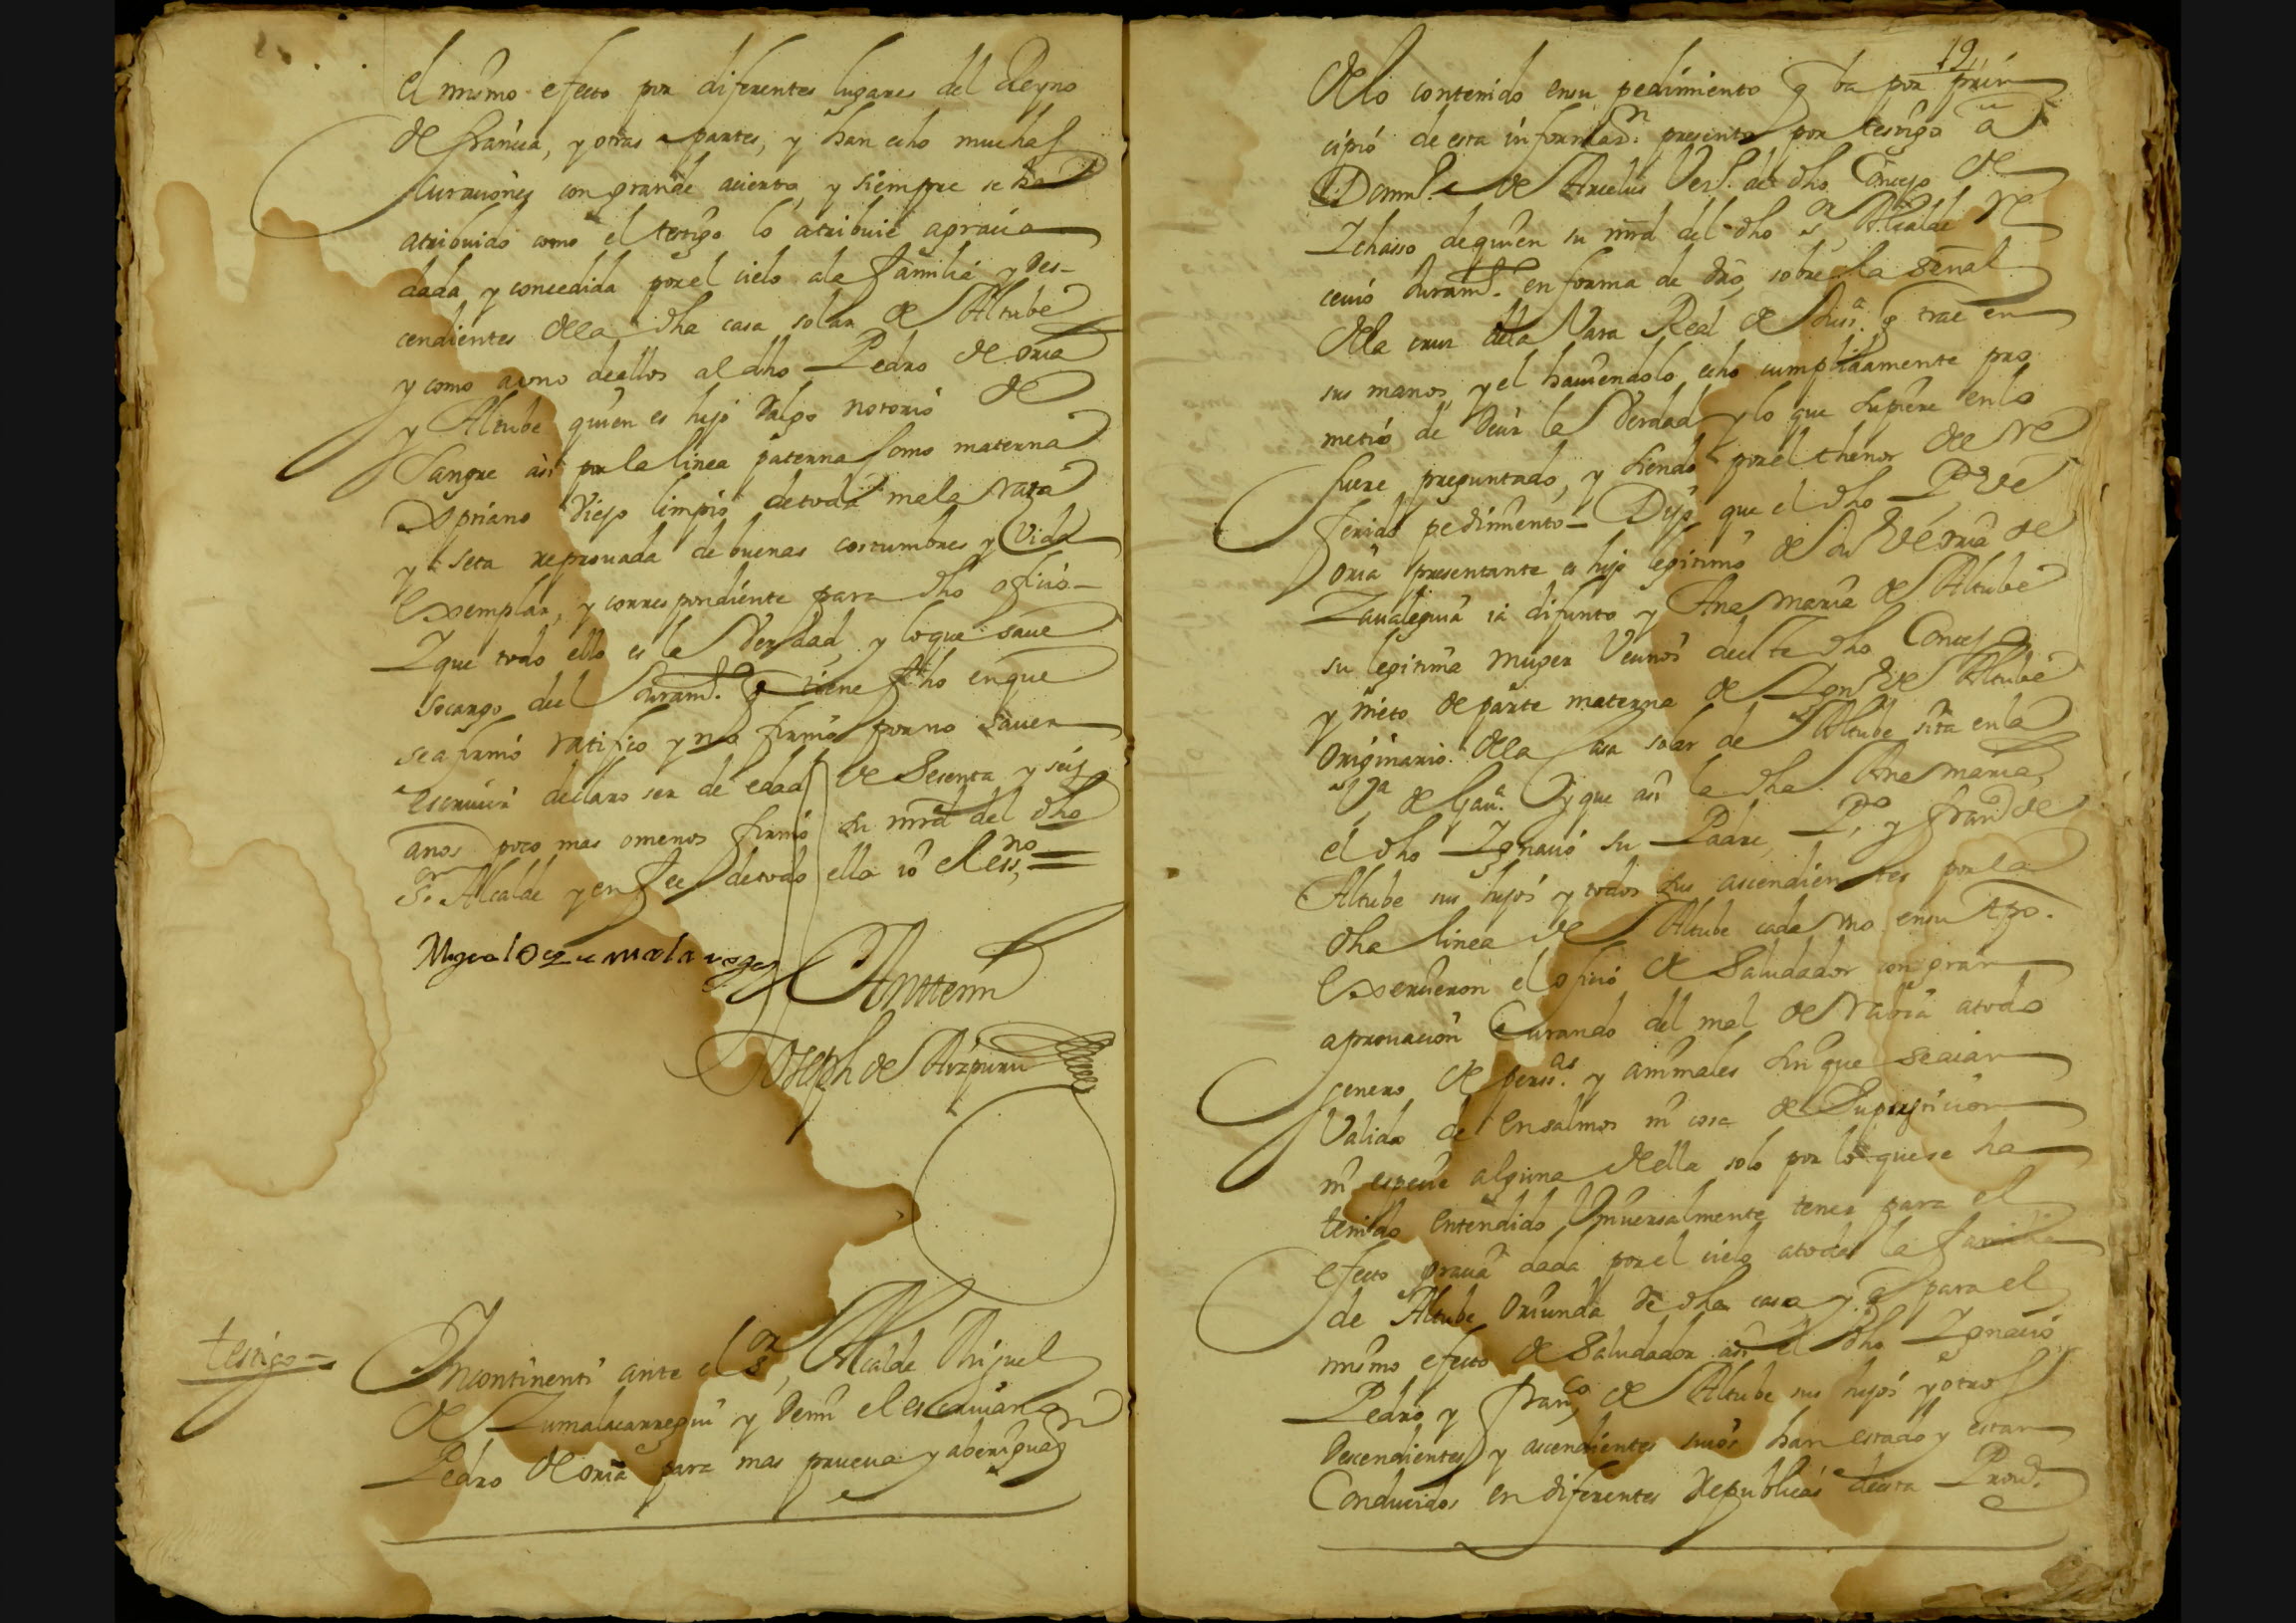 el mismo efecto por diferentes lugares del Reyno
de francia, y otras partes, y han echo muchas
Curaciones con grande acierto, y siempre se ha
atribuido como el testigo lo atribuie a gracia
dada y concedida por el cielo ala familia y Des-
cendientes della dha casa solar de Altube
y como a uno de ellos al dho Pedro de oria
y Altube quien es hijo dalgo notorio de
Sangre asi por la linea paterna Como materna
Xpriano Viejo limpio de toda mala raza
y seta reprouada de buenas costumbres y Vida
Exemplar, y correspondiente para dho oficio-
Y que todo ello es la Verdad, y lo que saue
socargo del Juramto. q tiene fho en que
se afirmo ratifico y no firmo por no sauer
escriuir declaro ser de edad de Sesenta y seis
anos poco mas o menos firmo su mrd del dho
Sor. Alcalde y en fee de todo ello io el essno =
Migual de zumalaregi
Antemi
Joseph de Aizpuru
testigo=
Incontinenti ante el sor Alcalde Miguel
de Zumalacarregui y Demi el escriuano
Pedro de oria para mas prueua y aberigua
12
de lo contenido en su pedimiento q ba por prin
cipio de esta informaon. presento por testigo a
Domo. de Arcelus Veso. del dho Concejo de
Ichasso de quien su mrd del dho sor Alcalde re
ceuio Juramto. en forma de dro, sobre la senal
de la cruz de la Vara Real de Jusa. q trae en
sus manos, y el hauiendolo echo cumplidamente pro
metio de decir la Verdad y lo que supiere en lo
fuere preguntado, y siendo por el thenor del re
ferido pedimento- Dijo que el dho Po de
oria presentante es hijo legitimo de Ju de oria de
Zaualegui ia difunto y Ana Maria de Altube
su legitima muger Vecinos deeste dho Concejo
y nieto de parte materna de Igno de Altube
Originario. de la Casa solar de Altube sita en la
va de Gaua. Y que asi la dha Ana maria,
el dho Ignacio su Padre, Po. y Frano de
Altube sus hijos y todos sus ascendientes por la
dha linea de Altube cada vno en su tpo.
Exercieron el oficio de Saludador con gran
aprouacion Curando del mal de rabia a todo
genero de persas. y animales sin que se aian
Valido de Ensalmos ni cosa de Supersticion
ni especie alguna de ella solo por lo que se ha
tenido entendido Vniuersalmente tener para el
efecto gracia dada por el cielo a toda la familia
de Altube Oriunda de dha casa y q para el
mismo efecto de Saludador asi el dho Ignacio
Pedro, y Franco de Altube sus hijos y otros
Descendientes y ascendientes suios han estado y estan
Conducidos en diferentes Republicas desta Prova.